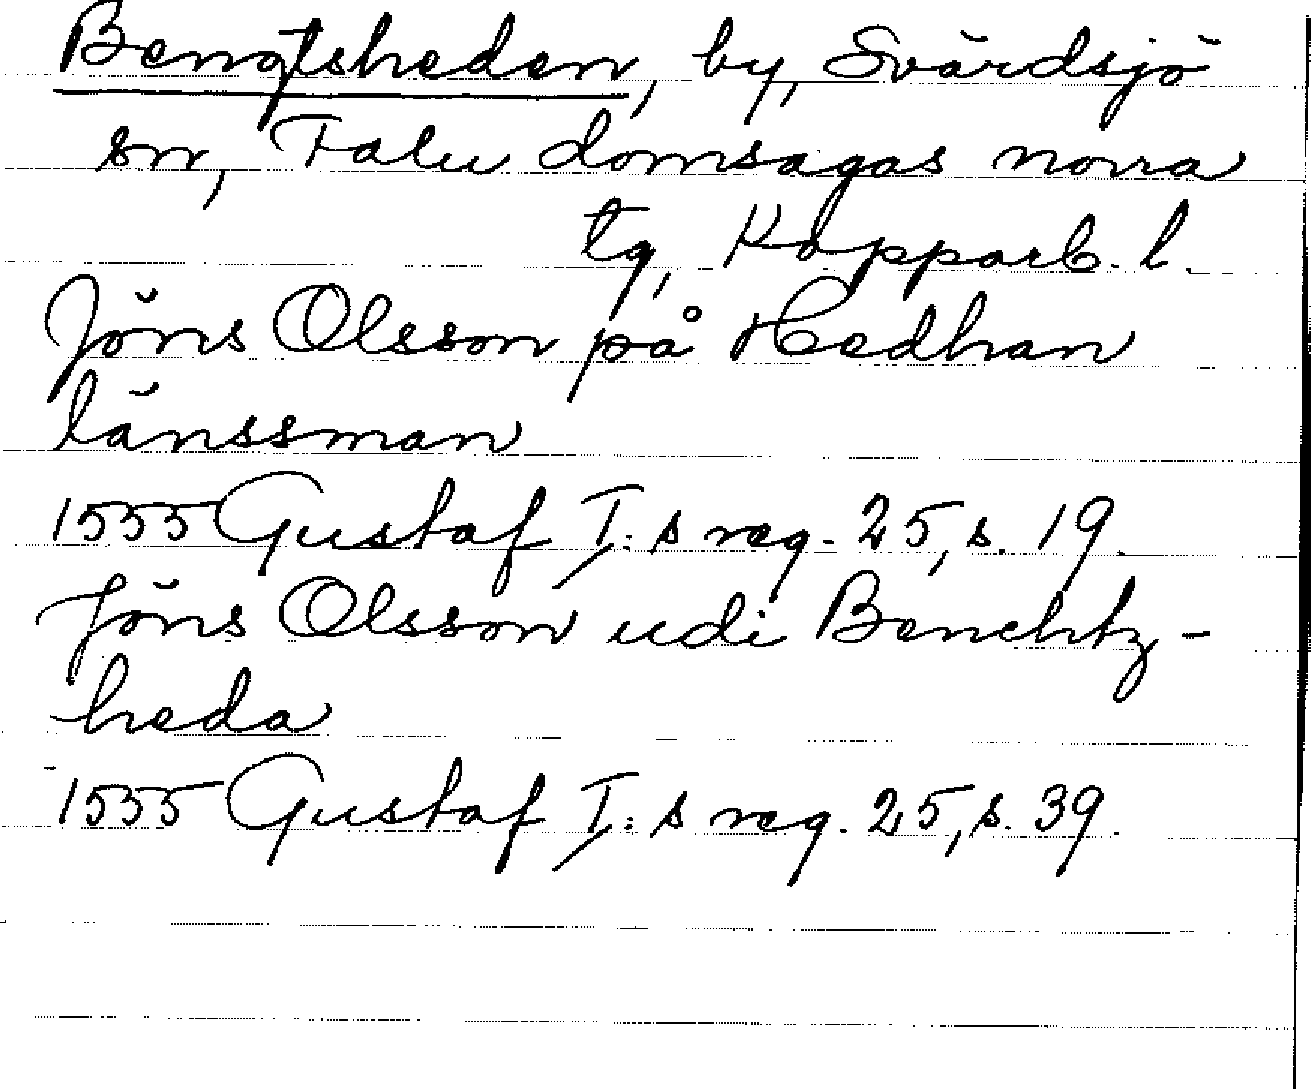 Bengtsheden, by, Svärdsjö
sn, Falu domsagas norra
tg, Kopparb. l.
Jöns Olsson på Hedhan
länssman
1555 Gustaf I:s reg. 25, s. 19.
Jöns Olsson udi Benchtz-
heda
1555 Gustaf I:s reg. 25, s. 39.